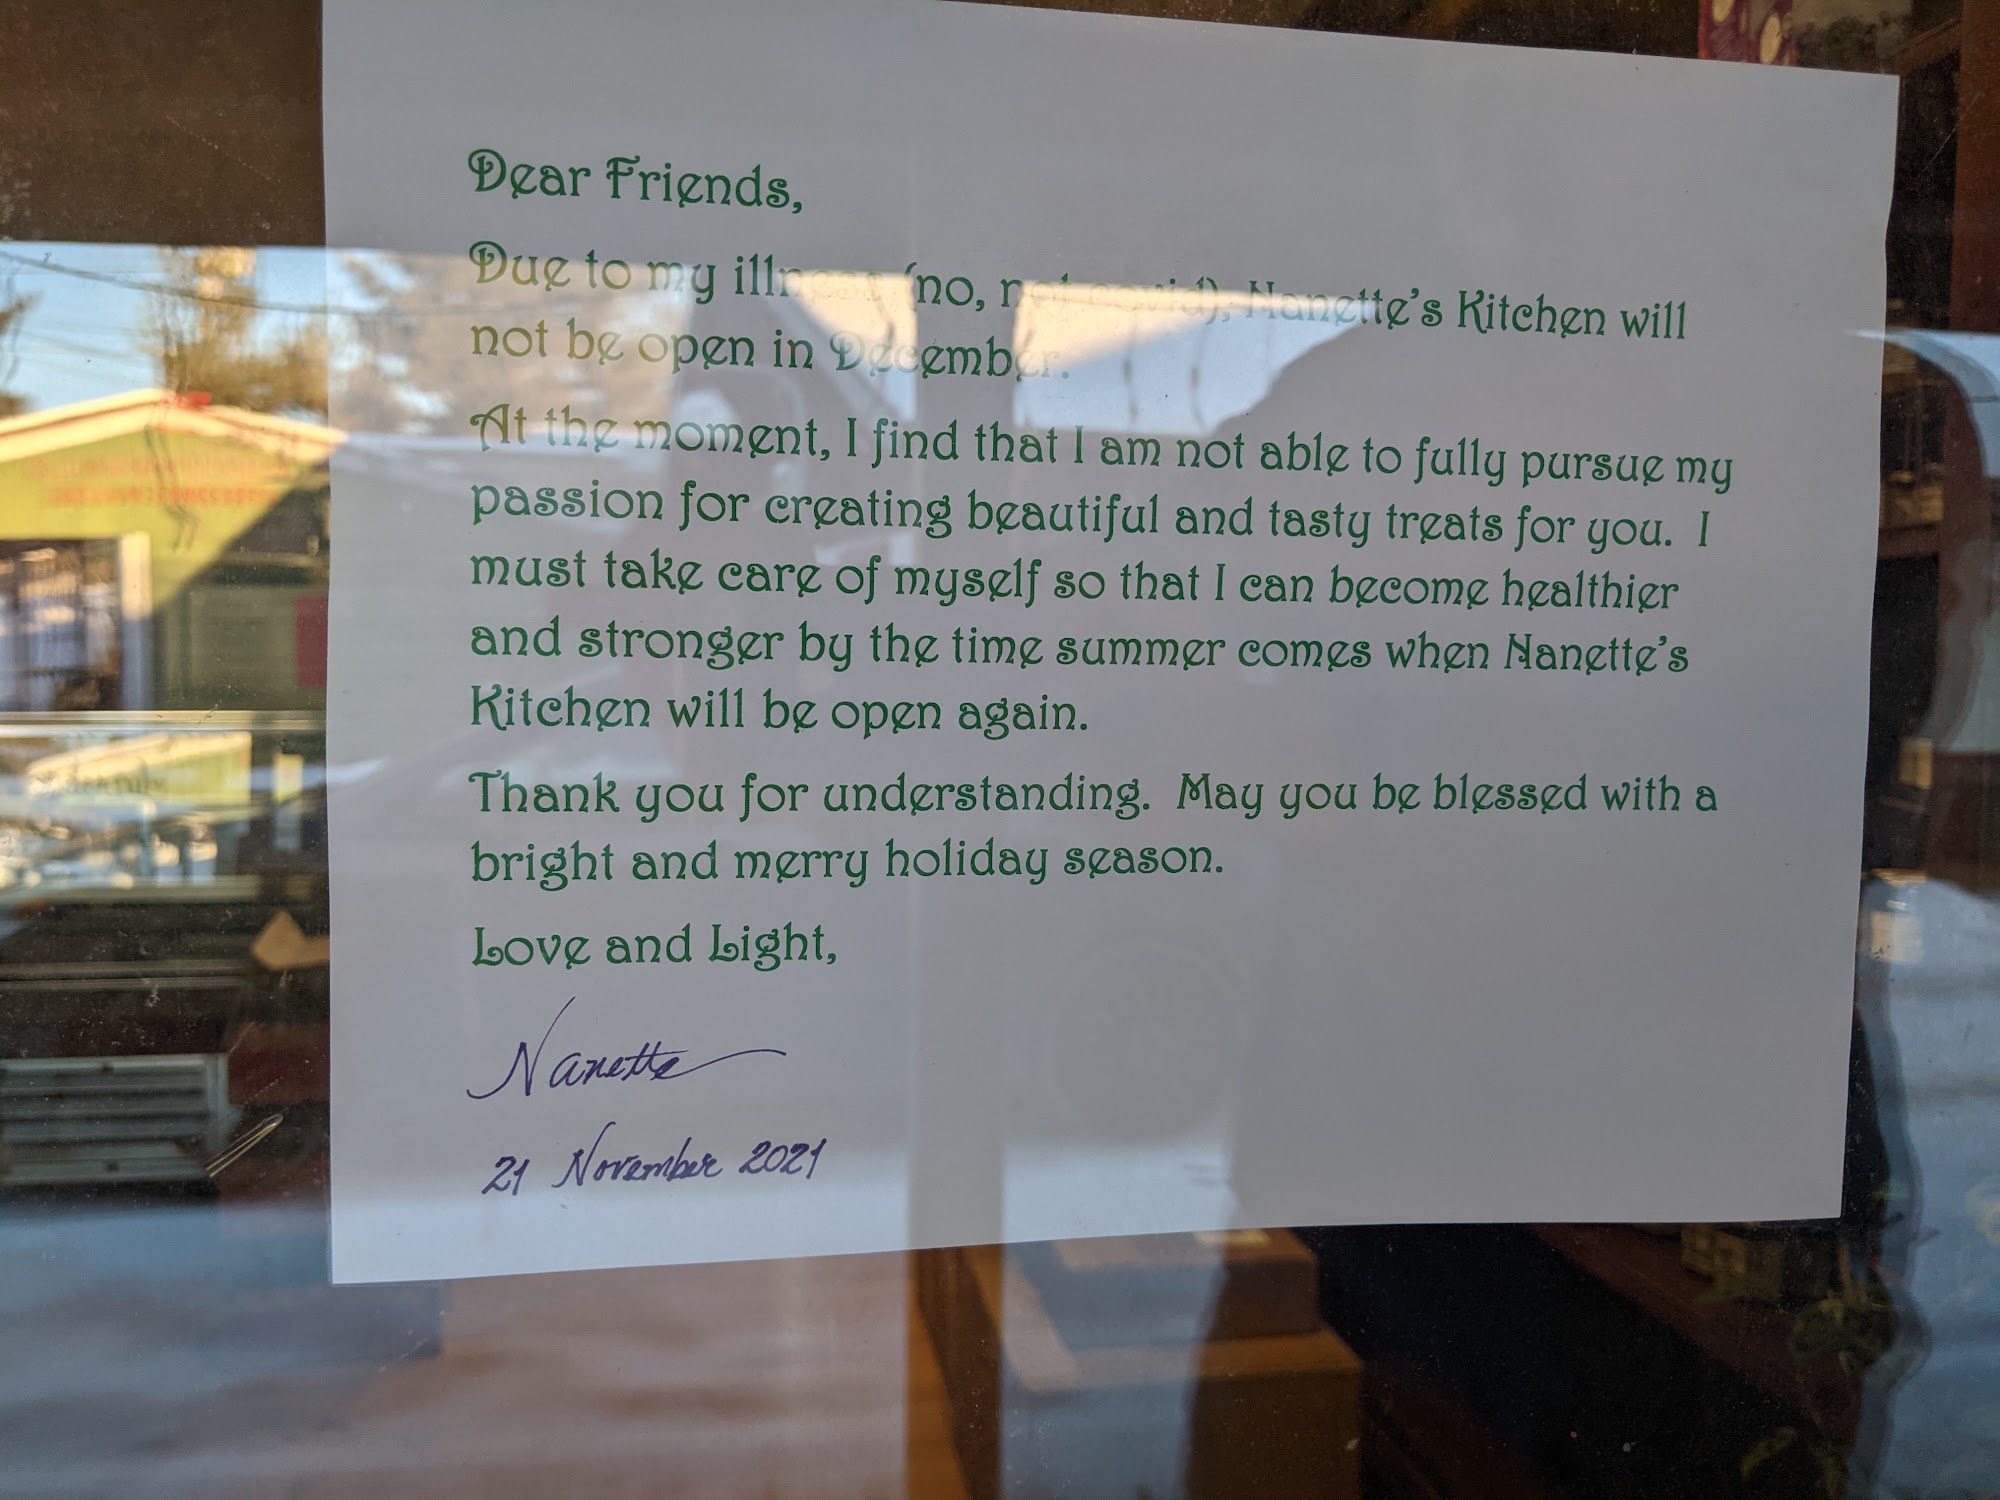 Dear Friends,
Due to my illness (no, not covid), Nanette's Kitchen will
not be open in December.
At the moment, I find that I am not able to fully pursue my
passion for creating beautiful and tasty treats for you. I
must take care of myself so that I can become healthier
and stronger by the time summer comes when Nanette's
Kitchen will be open again.
Thank you for understanding. May you be blessed with a
bright and merry holiday season.
Love and Light,
Nanette
21 November 2021